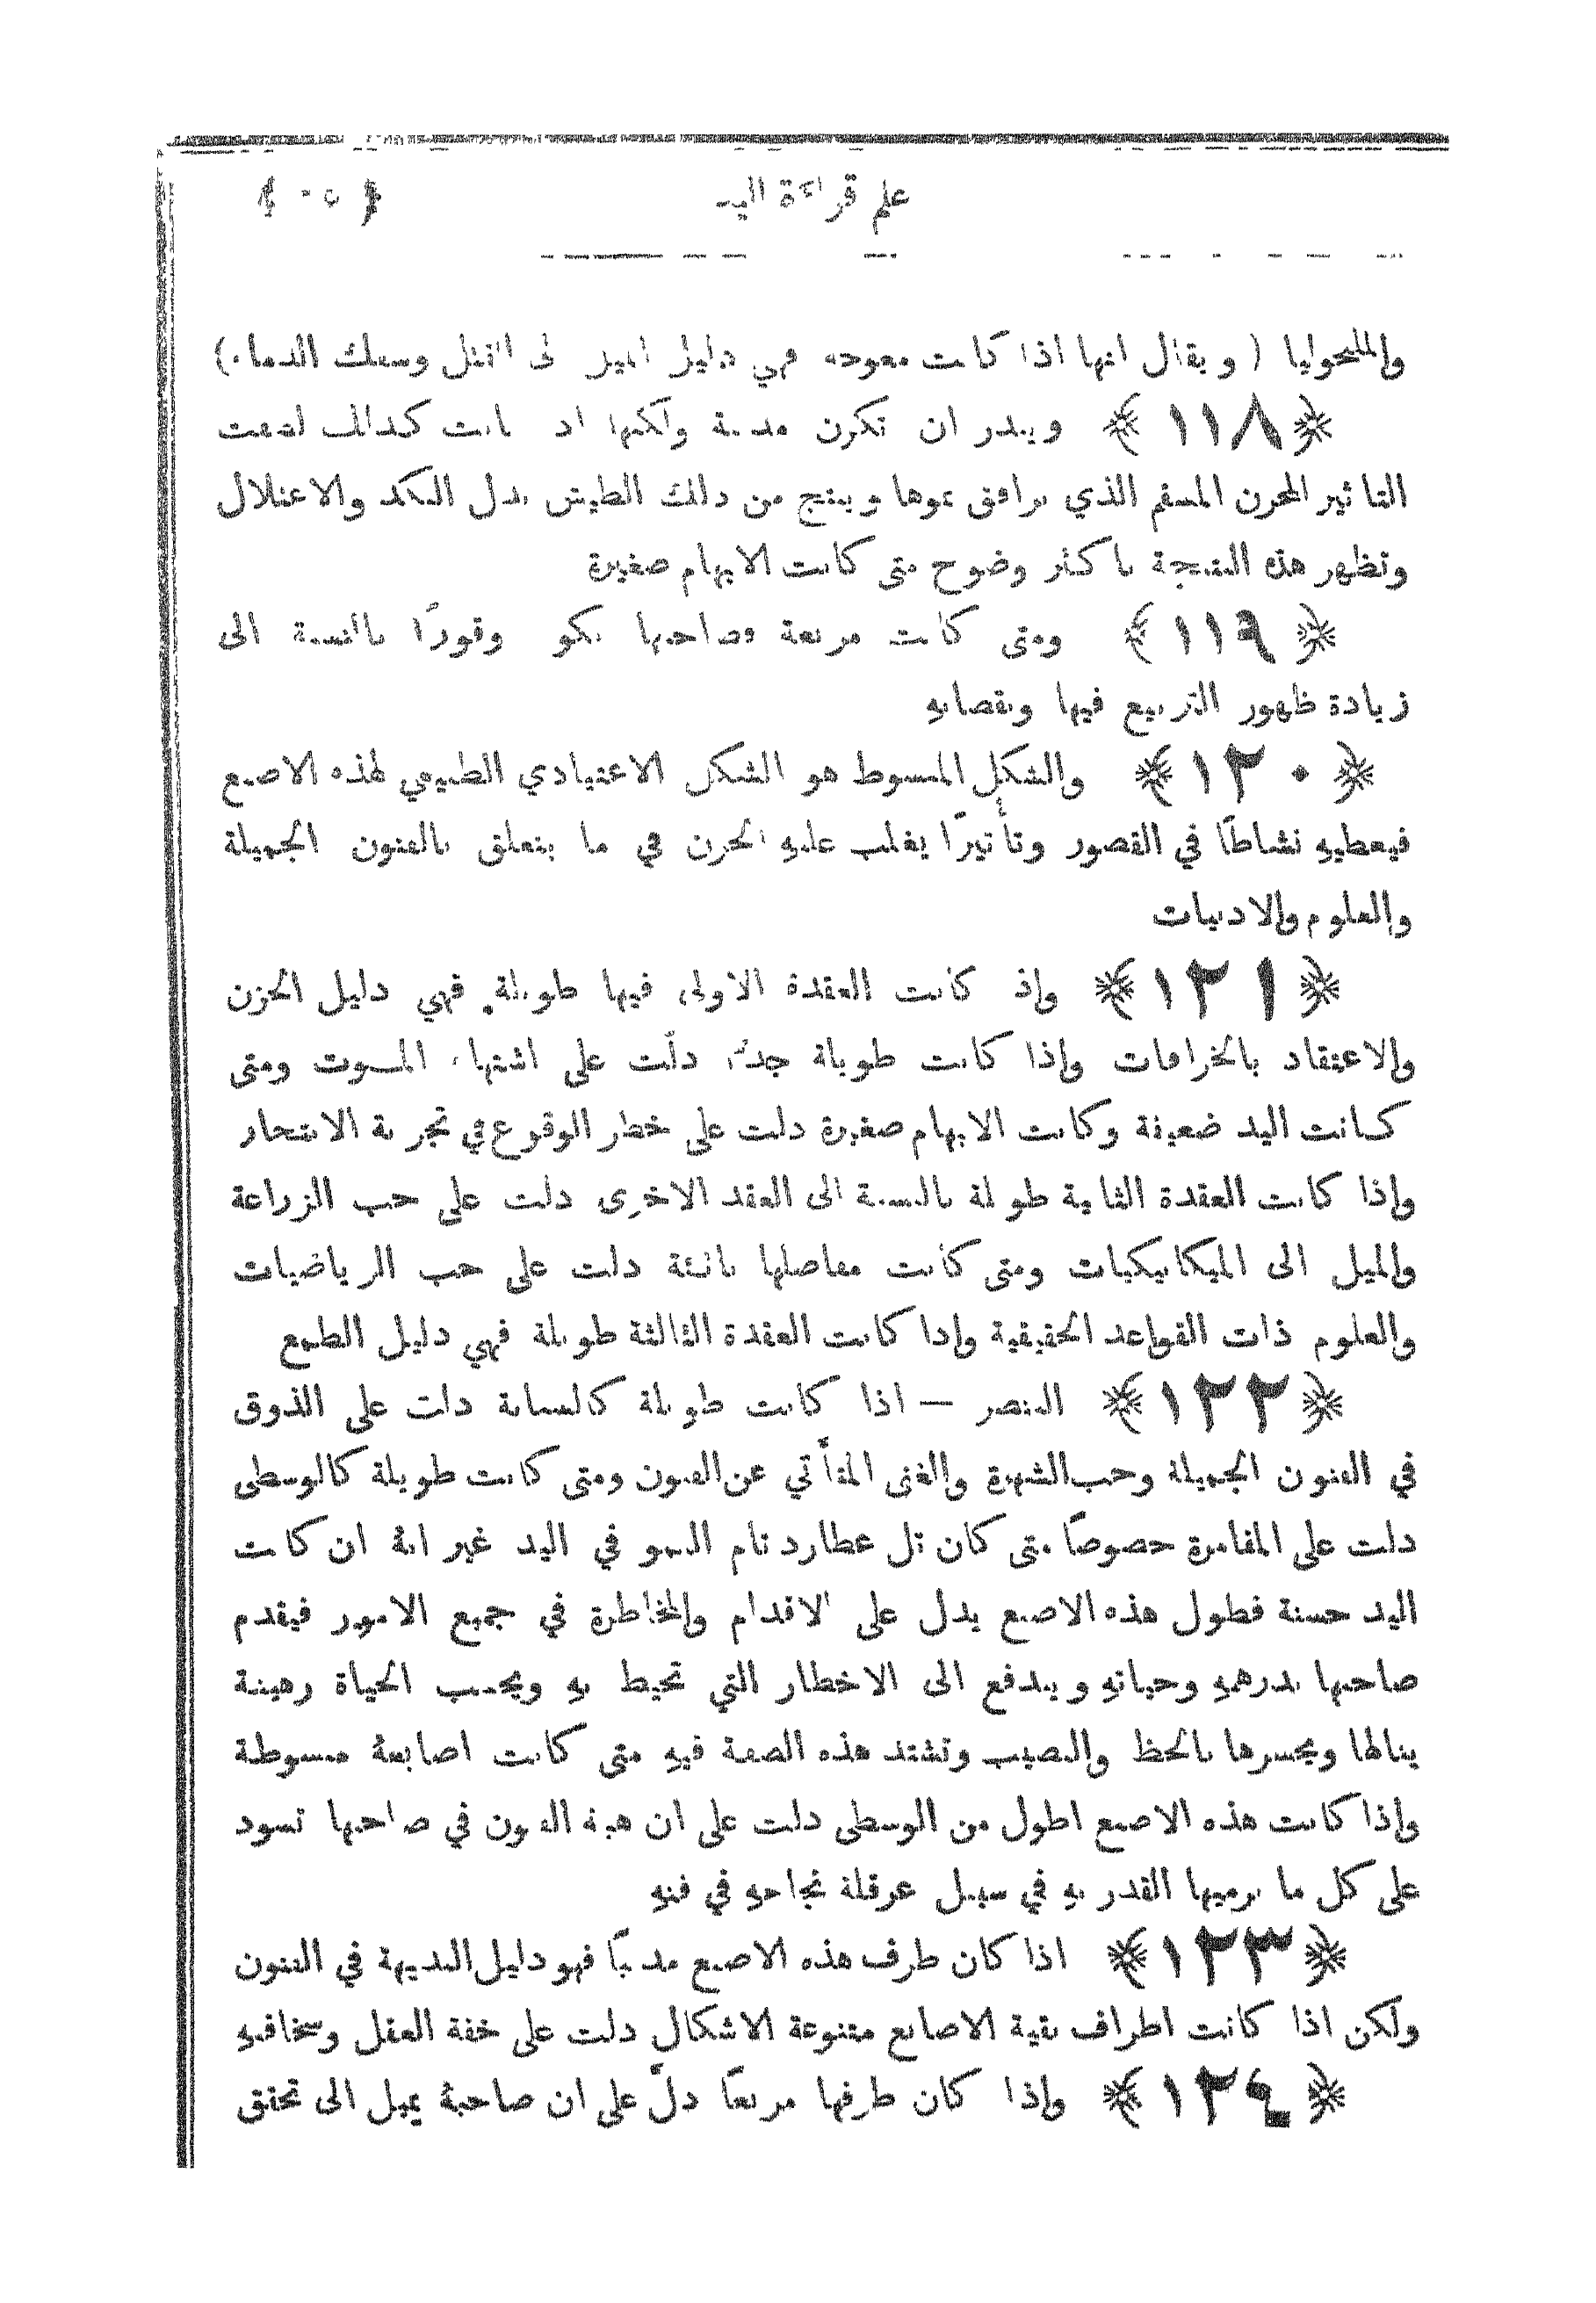 علم قراءة اليد
﴿ ٥٠ ﴾
والملنحوليا ( ويقال انها اذا كانت معوجة فهي دليل الميل الى القتل وسفك الدماء)
﴿١١٨﴾ ويندر ان تكون مدببة ولكنها اذا كانت كذلك لطفت
التاثير المحزن المسقم الذي يرافق نموها وينتج من ذلك الطيش بدل النكد والاعتلال
وتظهر هذه النتيجة باكثر وضوح متى كانت الابهام صغيرة
﴿١١٩﴾ ومتى كانت مربعة فصاحبها يكون وقورًا بالنسبة الى
زيادة ظهور التربيع فيها ونقصانهِ
﴿١٢٠﴾ والشكل المبسوط هو الشكل الاعتيادي الطبيعي لهذه الاصبع
فيعطيهِ نشاطًا في القصور وتأثيرًا يغلب عليهِ الحزن في ما يتعلق بالفنون الجميلة
والعلوم والادبيات
﴿١٢١﴾ واذا كانت العقدة الاولى فيها طويلة فهي دليل الحزن
والاعتقاد بالخرافات واذا كانت طويلة جدًّا دلَّت على اشتهاء الموت ومتى
كانت اليد ضعيفة وكانت الابهام صغيرة دلت على خطر الوقوع في تجربة الانتحار
واذا كانت العقدة الثانية طويلة بالنسبة الى العقد الاخرى دلت على حب الزراعة
والميل الى الميكانيكيات ومتى كانت مفاصلها ناتئة دلت على حب الرياضيات
والعلوم ذات القواعد الحقيقية واذا كانت العقدة الثالثة طويلة فهي دليل الطمع
﴿١٢٢﴾ البنصر — اذا كانت طويلة كالسبابة دلت على الذوق
في الفنون الجميلة وحب الشهرة والغنى المتأتي عن الفنون ومتى كانت طويلة كالوسطى
دلت على المغامرة خصوصًا متى كان تل عطارد تام النمو في اليد غير انهُ ان كانت
اليد حسنة فطول هذه الاصبع يدل على الاقدام والمخاطرة في جميع الامور فيقدم
صاحبها بدرهمهِ وحياتهِ ويندفع الى الاخطار التي تحيط بهِ ويحسب الحياة رهينة
ينالها ويخسرها بالحظ والنصيب وتشتد هذه الصفة فيهِ متى كانت اصابعهُ مبسوطة
واذا كانت هذه الاصبع اطول من الوسطى دلت على ان هبة الفنون في صاحبها تسود
على كل ما يرميها القدر بهِ في سبيل عرقلة نجاحهِ في فنهِ
﴿١٢٣﴾ اذا كان طرف هذه الاصبع مدببًا فهو دليل البديهة في الفنون
ولكن اذا كانت اطراف بقية الاصابع متنوعة الاشكال دلت على خفة العقل وسخافتهِ
﴿١٢٤﴾ واذا كان طرفها مربعًا دلَّ على ان صاحبهُ يميل الى تحقق